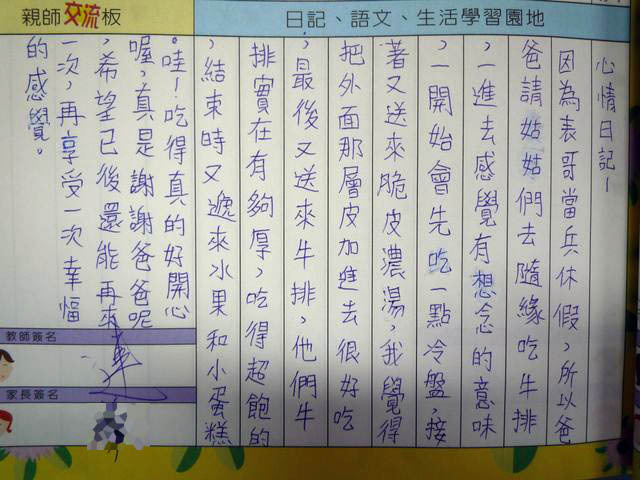 親師交流板
日記、語文、生活學習園地
心情日記—
因為表哥當兵休假，所以爸
爸請姑姑們去隨緣吃牛排
，一進去感覺有想念的意味
，一開始會先吃一點冷盤，接
著又送來脆皮濃湯，我覺得
把外面那層皮加進去很好吃
，最後又送來牛排，他們牛
排實在有夠厚，吃得超飽的
，結束時又遞來水果和小蛋糕
。哇！吃得真的好開心
喔，真是謝謝爸爸呢
，希望已後還能再來
一次，再享受一次幸福
的感覺。
教師簽名
家長簽名